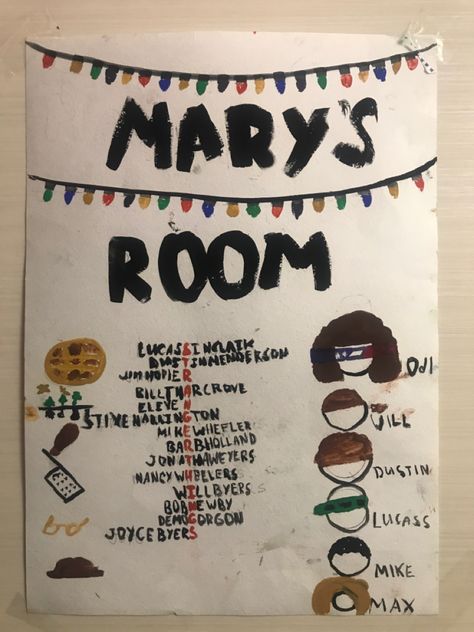 MARY'S
ROOM
LUCASSINCLAIR
JIM HOPIER
BILLTHARGROVE
ELEVE
STIVEHARRINGTON
MIKEWHEELER
BARBHOLLAND
JONATHAWEYERS
NANCYWHEELERS
WILLBYERS
BOBNEWBY
DEMOGORGON
JOYCEBYERS
WILL
DUSTIN
LUCASS
MIKE
MAX